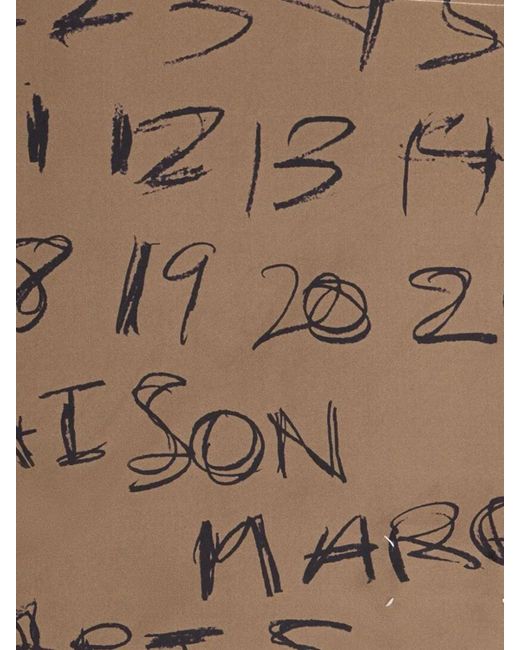 2 3 4 5
1 12 13 14
8 19 20 2
AISON
MARG
ARIS